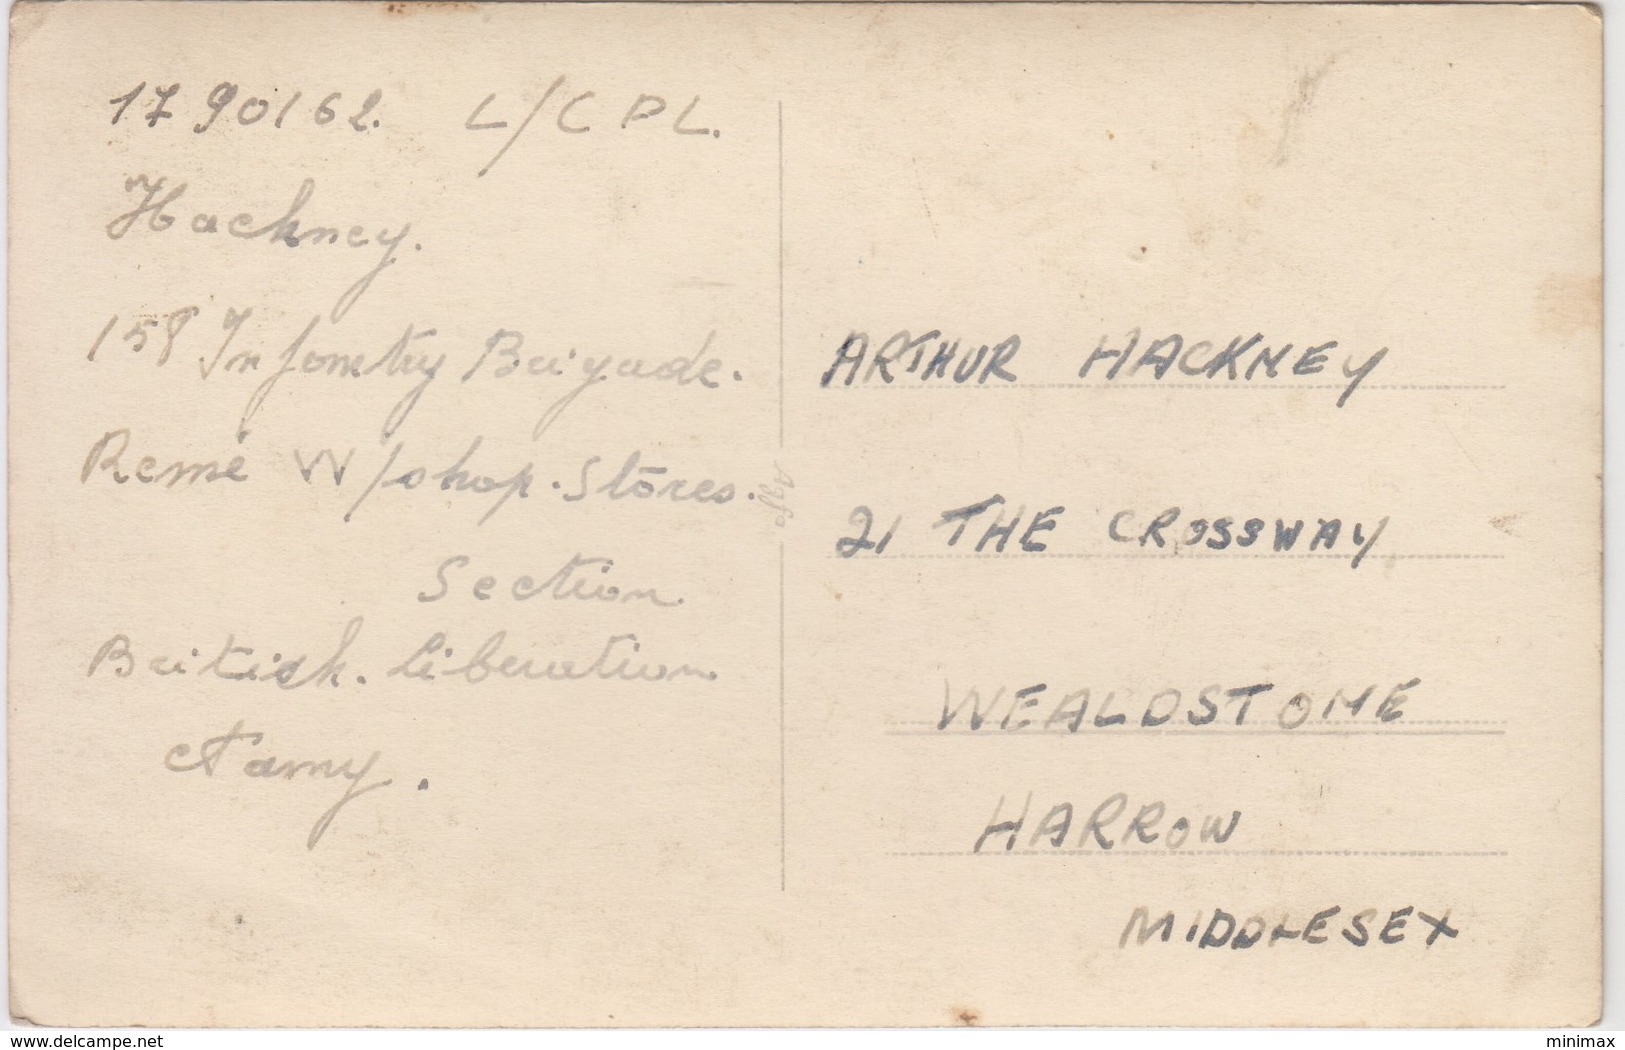 1790162. L/CPL.
Hackney.
158 Infantry Brigade.
Reme W/shop. Stores.
Section
British. Liberation
Army.
Agfa
ARTHUR HACKNEY
21 THE CROSSWAY
WEALDSTONE
HARROW
MIDDLESEX
www.delcampe.net
minimax